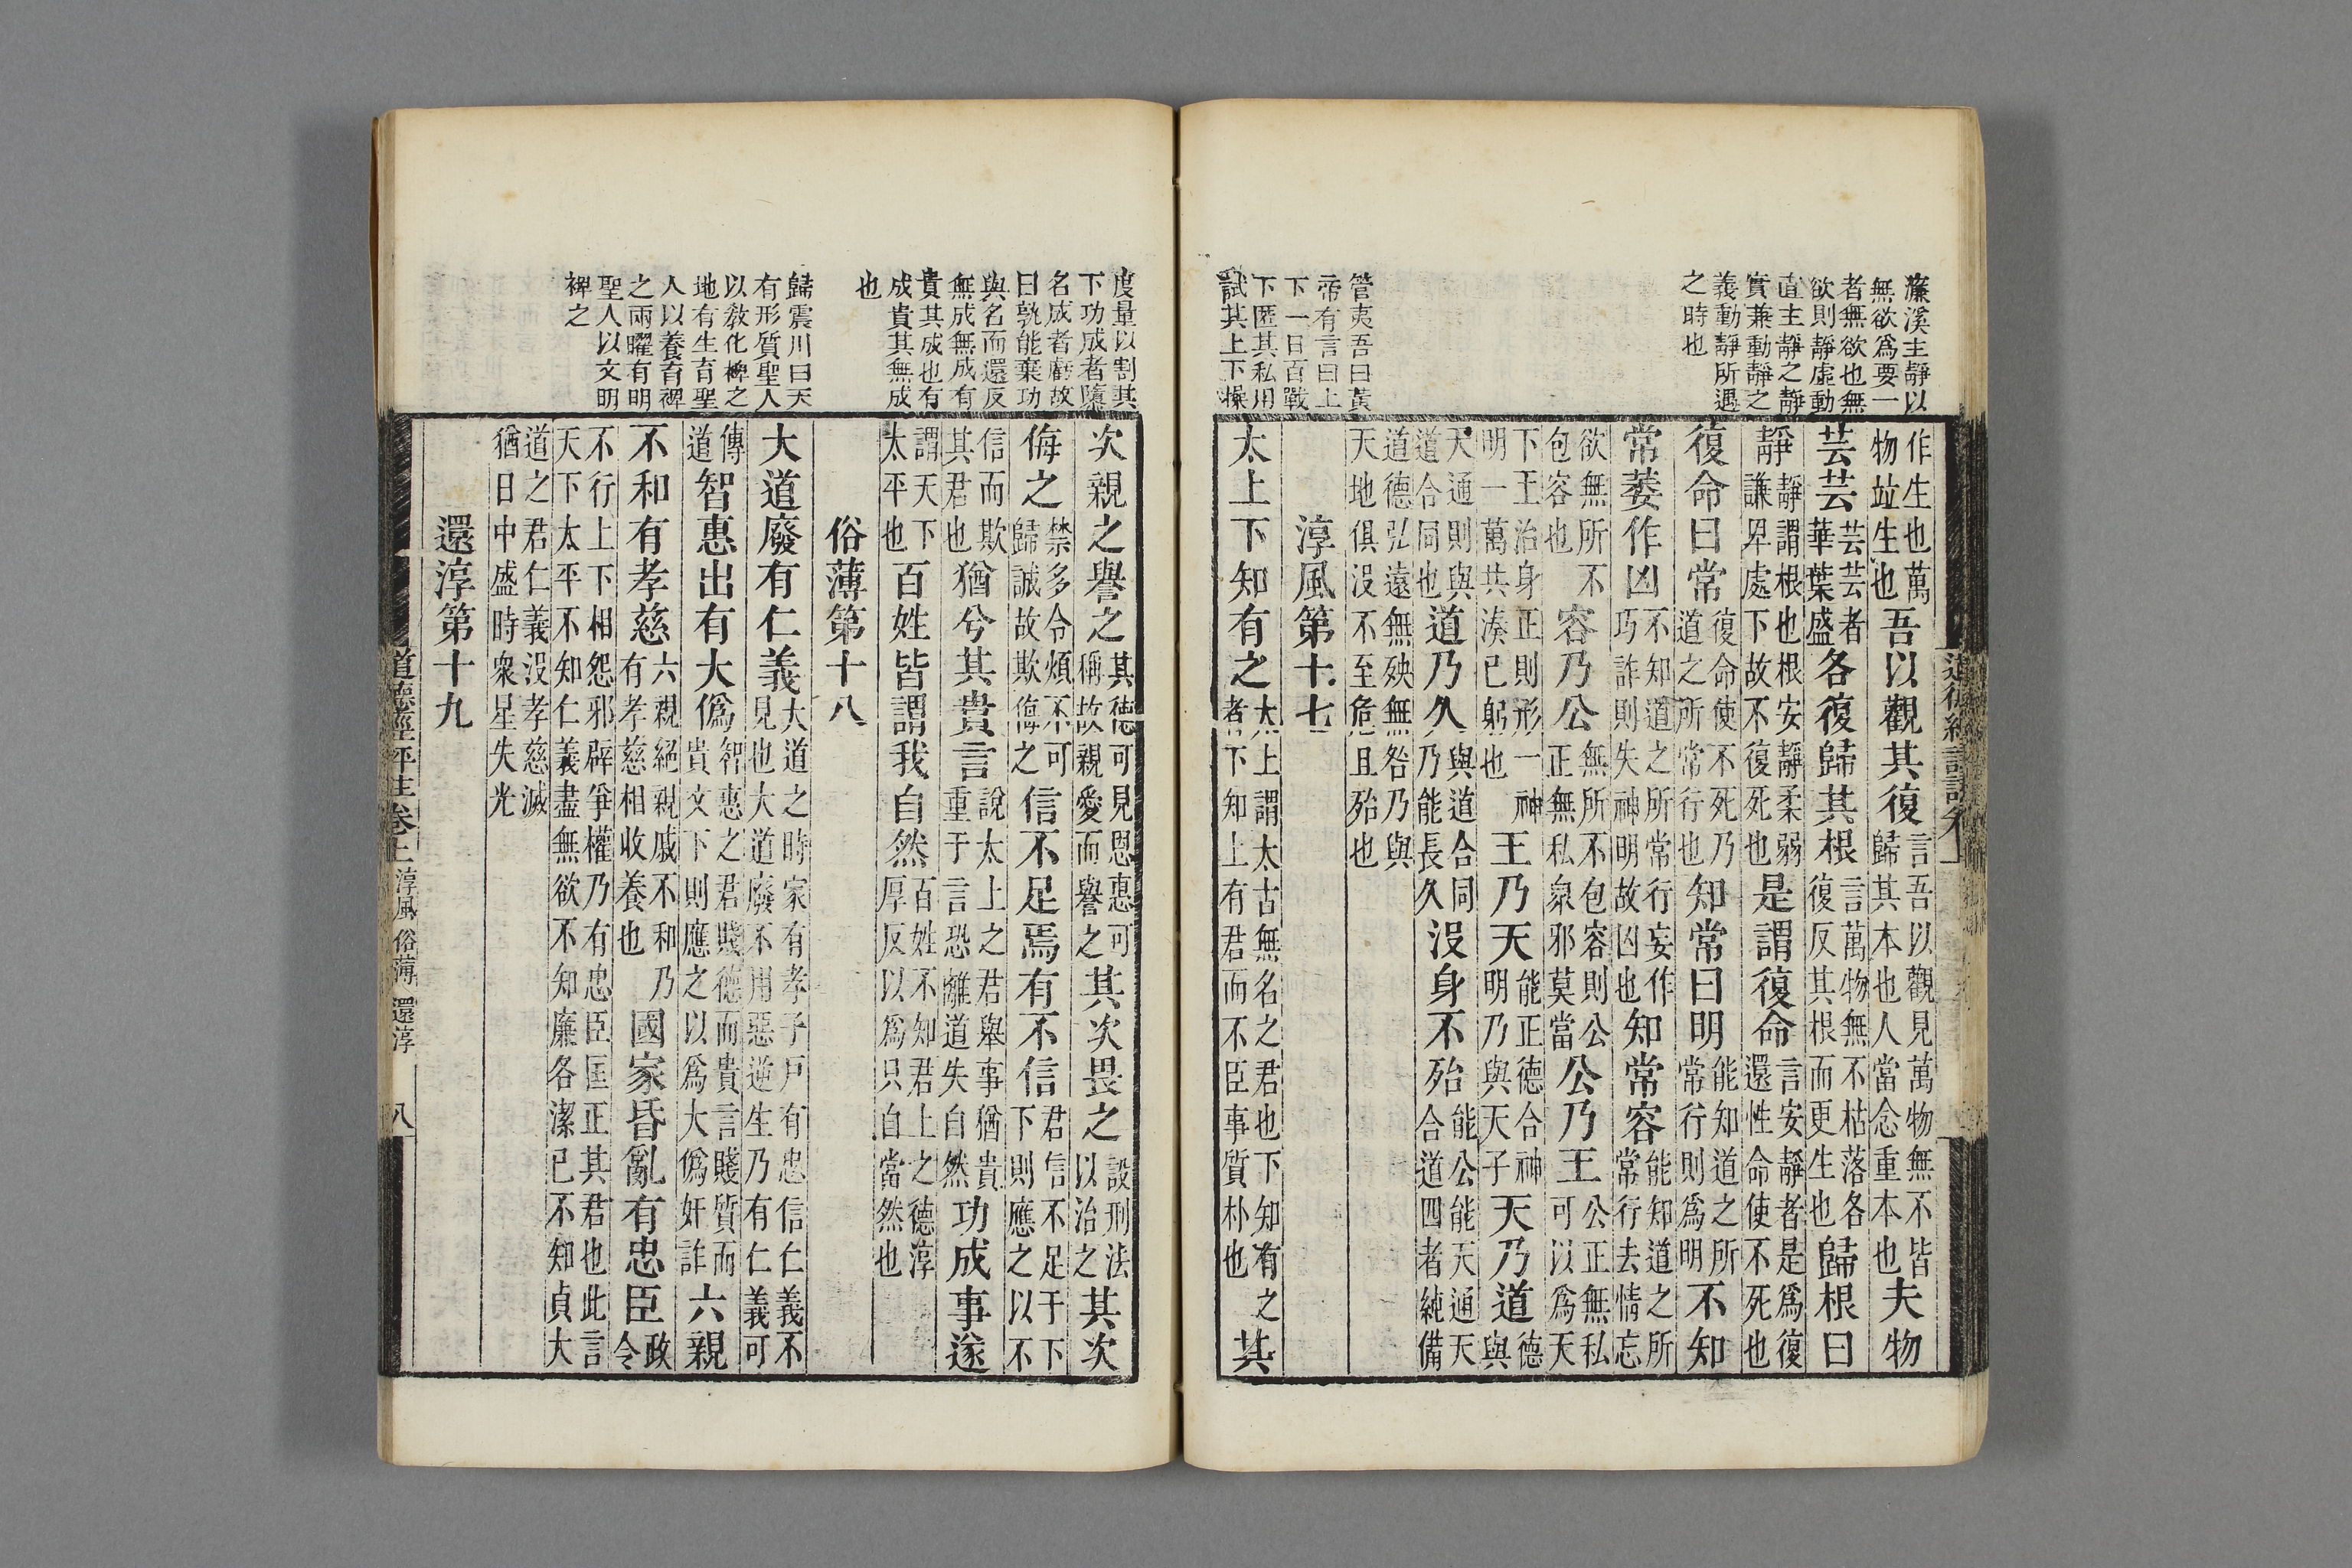 濂溪主靜以
無欲爲要一
者無欲也無
欲則靜虛動
直主靜之靜
實兼動靜之
義動靜所遇
之時也
管夷吾曰黃
帝有言曰上
下一日百戰
下匿其私用
試其上下操
作生也萬物竝生也吾以觀其復言吾以觀見萬物無不皆歸其本也人當念重本也夫物
芸芸芸芸者華葉盛各復歸其根言萬物無不枯落各復反其根而更生也歸根曰
靜靜謂根也根安靜柔弱謙卑處下故不復死也是謂復命言安靜者是爲復還性命使不死也
復命曰常復命使不死乃道之所常行也知常曰明能知道之所常行則爲明不知
常萎作凶不知道之所常行妄作巧詐則失神明故凶也知常容能知道之所常行去情忘
欲無所不包容也容乃公無所不包容則公正無私衆邪莫當公乃王公正無私可以爲天
下王治身正則形一神明一萬共湊已躬也王乃天能正德合神明乃與天子天乃道德與
天通則與道合同也道乃久與道合同乃能長久沒身不殆能公能天通天合道四者純備
道德弘遠無殃無咎乃與天地俱沒不至危且殆也
淳風第十七
太上下知有之太上謂太古無名之君也下知有之者下知上有君而不臣事質朴也其
度量以割其
下功成者墮
名成者虧故
曰孰能棄功
與名而還反
無成無成有
貴其成也有
成貴其無成
也
歸震川曰天
有形質聖人
以教化裨之
地有生育聖
人以養育裨
之兩曜有明
聖人以文明
裨之
次親之譽之其德可見恩惠可稱故親愛而譽之其次畏之設刑法以治之其次
侮之禁多令煩不可歸誠故欺侮之信不足焉有不信君信不足于下下則應之以不
信而欺其君也猶兮其貴言說太上之君舉事猶貴重于言恐離道失自然功成事遂
謂天下太平也百姓皆謂我自然百姓不知君上之德淳厚反以爲只自當然也
俗薄第十八
大道廢有仁義大道之時家有孝子戶有忠信仁義不見也大道廢不用惡逆生乃有仁義可
傳道智惠出有大僞智惠之君賤德而貴言賤質而貴文下則應之以爲大僞奸詐六親
不和有孝慈六親絕親戚不和乃有孝慈相收養也國家昏亂有忠臣政令
不行上下相怨邪辟爭權乃有忠臣匡正其君也此言天下太平不知仁義盡無欲不知廉各潔已不知貞大
道之君仁義沒孝慈滅猶日中盛時衆星失光
還淳第十九
道德經評註卷上 淳風 俗薄 還淳 八